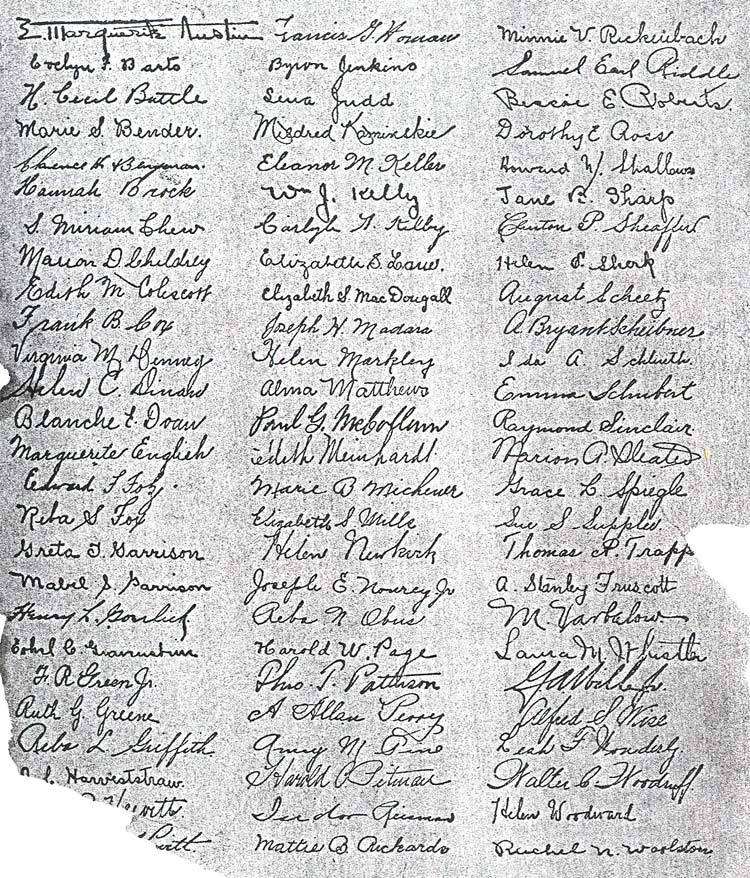 E. Marguerite Austin
Evelyn F. Barto
H. Cecil Battle
Marie S. Bender.
Clarence
Hannah Brock
S. Miriam Chew
Marion D. Childrey
Edith M Colescott
Frank B. Cox
Virginia M. Denney
Helen C. Dinan
Blanche E. Doan
Marguerite English
Edward F. Foy.
Reba S Foy
Greta I. Garrison
Mabel S. Garrison
Henry L.
C.
F. R. Green Jr.
Ruth G. Greene
Reba L Griffith
Harveststraw.
Hewitt
Francis G. Homan
Byron Jenkins
Lena Judd
Mildred Kaminckie
Eleanor M. Keller
Wm J. Kelly
Carlyle Kilby
Elizabeth S. Lane.
Elizabeth S. MacDougall
Joseph H. Madara
Helen Markley
Alma Matthews
Paul G. McCollum
Edith Meinhardt
Marie B Michener
Elizabeth S Mills
Helen Newkirk
Joseph E. Nourey Jr
Reba N. Obus
Harold W. Page
Thos. T. Patterson
A Allan Perry
Amy M Pine
Harold C Pitman
Isidor
Mattie B Rickards
Minnie V. Rickenbach
Samuel Earl Riddle
Bessie E Roberts.
Dorothy E Ross
Howard W. Shallows
Jane B. Sharp
Clinton P. Sheaffer
Helen F. Shork
August Scheetz
A. Bryant Scheibner
Ida A. Schlieth.
Emma Schubert
Raymond Sinclair
Marion A.
Grace L. Spiegle
Sue S. Supplee
Thomas R. Trapp
A. Stanley Truscott
M Varbalow
Laura M. Whistler
Alfred S. Wise
Leah F Wonderly
Walter C. Woodruff
Helen Woodward
Rachel N. Woolston